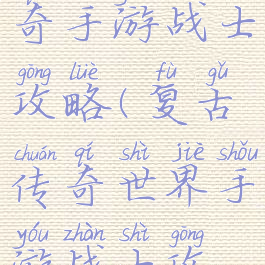 奇手游战士
gōng lüè fù gǔ
攻略(复古
chuán qí shì jiè shǒu
传奇世界手
yóu zhàn shì gōng
游战士攻